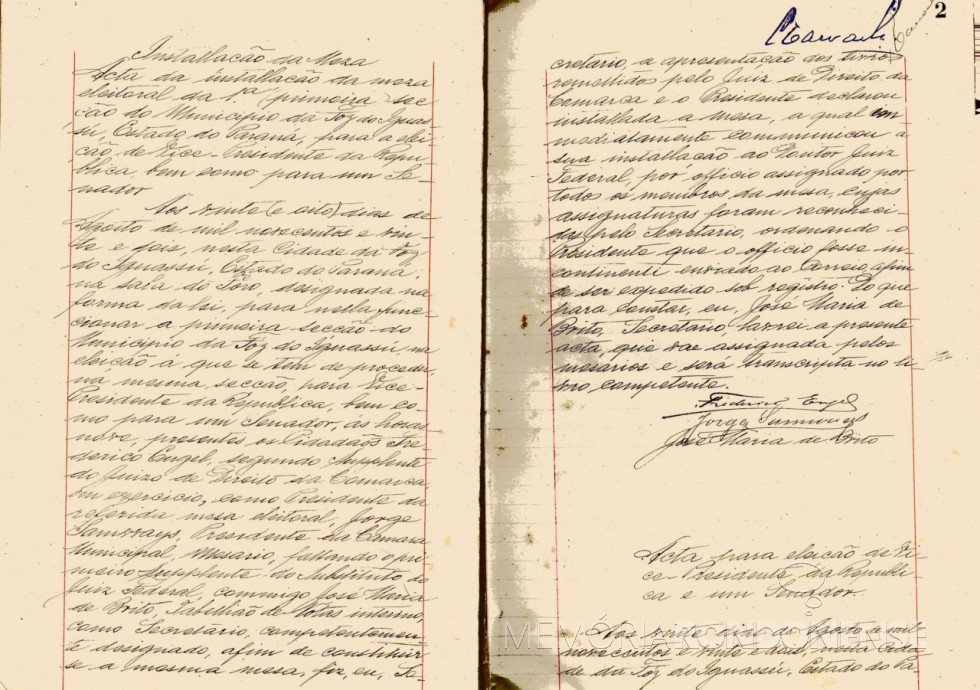 Installação da Meza
Acta da installação da meza
eleitoral da 1.ª (primeira) sec-
ção do Municipio da Foz do Iguas-
sú, Estado do Paraná, para a elei-
ção de Vice-Presidente da Repu-
blica, bem como para um Se-
nador
Aos vinte (e oito) dias de
Agosto de mil novecentos e vin-
te e dois, nesta Cidade da Foz
do Iguassú, Estado do Paraná,
na sala do Foro, designada na
forma da lei, para nella func-
cionar a primeira secção do
Municipio da Foz do Iguassú, na
eleição á que se tem de proceder,
na mesma secção, para Vice-
Presidente da Republica, bem co-
mo para um Senador, as horas
nove, presentes os Cidadãos Fre-
derico Engel, segundo Supplente
do Juizo de Direito da Comarca
em exercicio, como Presidente da
referida mesa eleitoral, Jorge
Samways, Presidente da Camara
Municipal, Mesario, faltando o pri-
meiro Supplente do Substituto do
Juiz Federal, commigo José Maria
de Brito, Tabellião de Notas interino,
como Secretário, competentemen-
te designado, afim de constituir-
se a mesma mesa, fiz, eu, Se-
2
cretario, a apresentação dos livros
remettidos pelo Juiz de Direito da
Comarca e o Presidente declarou
installada a mesa, a qual im-
mediatamente communicou a
sua installação ao Doutor Juiz
Federal, por officio assignado por
todos os membros da mesa, cujas
assignaturas foram reconheci-
das pelo Secretario, ordenando o
Presidente que o officio fosse in-
continenti enviado ao Correio, afim
de ser expedido sob registro. Do que
para constar, eu, José Maria de
Brito, Secretário, lavrei a presente
acta, que vae assignada pelos
mesarios e será transcripta no li-
vro competente.
Frederico Engel
Jorge Samways
José Maria de Brito
Acta para eleição de Vi-
ce-Presidente da Republi-
ca e um Senador.
Aos vinte dias de Agosto de mil
novecentos e vinte e dois, nesta Cida-
de da Foz do Iguassú, Estado do Pa-
MEMÓRIA RONDONENSE